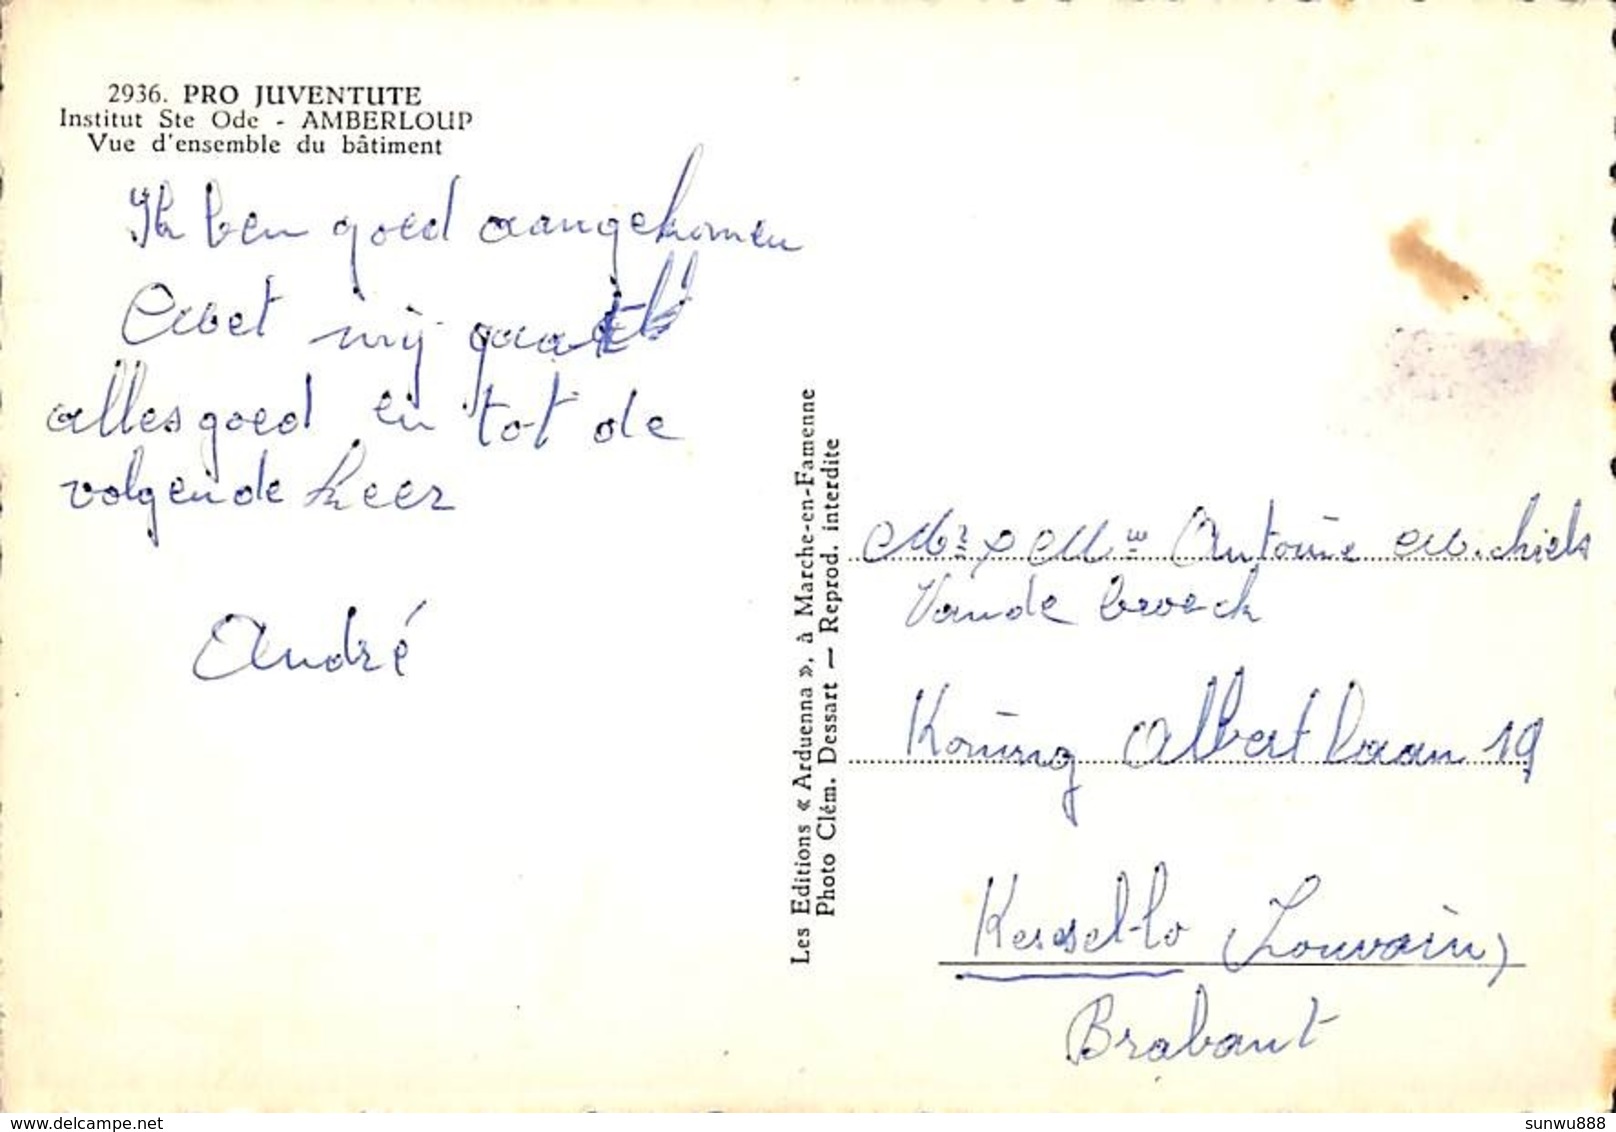 2936. PRO JUVENTUTE
Institut Ste Ode - AMBERLOUP
Vue d'ensemble du bâtiment
Ik ben goed aangekomen
Met mij gaat
alles goed en tot de
volgende keer
André
Les Editions « Arduenna », à Marche-en-Famenne
Photo Clém. Dessart — Reprod. interdite
Mr & Mme Antoine Michiels
Vande broeck
Koning Albert laan 19
Kessel-lo (Louvain)
Brabant
www.delcampe.net
sunwu888